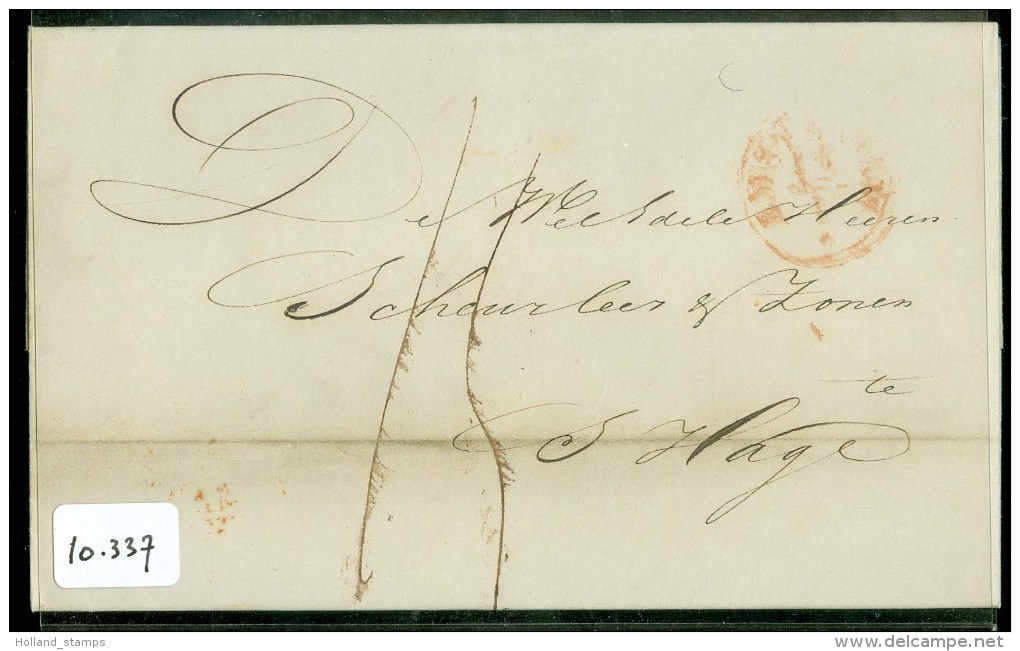 De Wel Edele Heeren
Scheurleer & Zonen
te
S Hage
10.337
Holland_stamps
www.delcampe.net